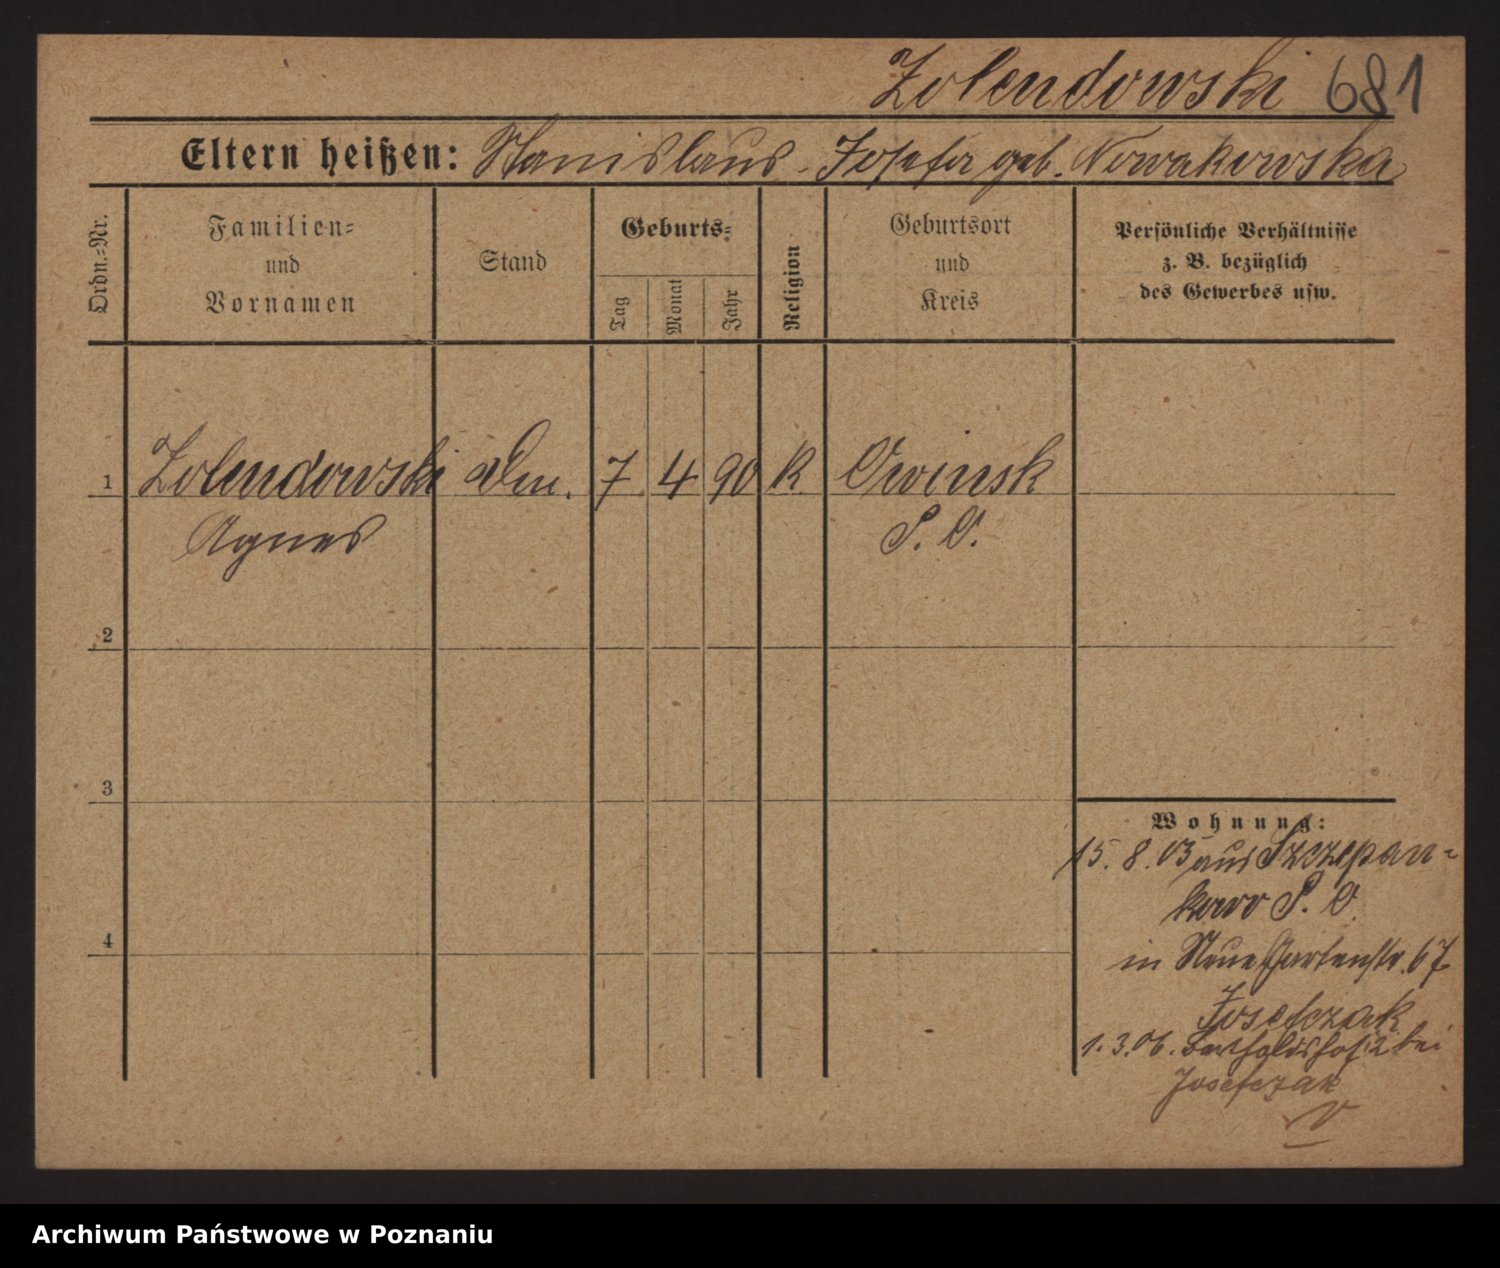 Zolendowski 681
Eltern heißen: Stanislaus - Josefa geb. Nowakowska
Ordn.-Nr.
Familien-
und
Vornamen
Stand
Geburts-
Tag
Monat
Jahr
Religion
Geburtsort
und
Kreis
Persönliche Verhältnisse
z. B. bezüglich
des Gewerbes usw.
1 Zolendowski 7 4 90 K Owinsk
Agnes P. O.
2
3
4
Wohnung:
15. 8. 03 aus Szczepan-
kowo P. O.
in Neue Gartenstr. 67
Josefczak
1. 3. 06. bei
Josefczak
Archiwum Państwowe w Poznaniu